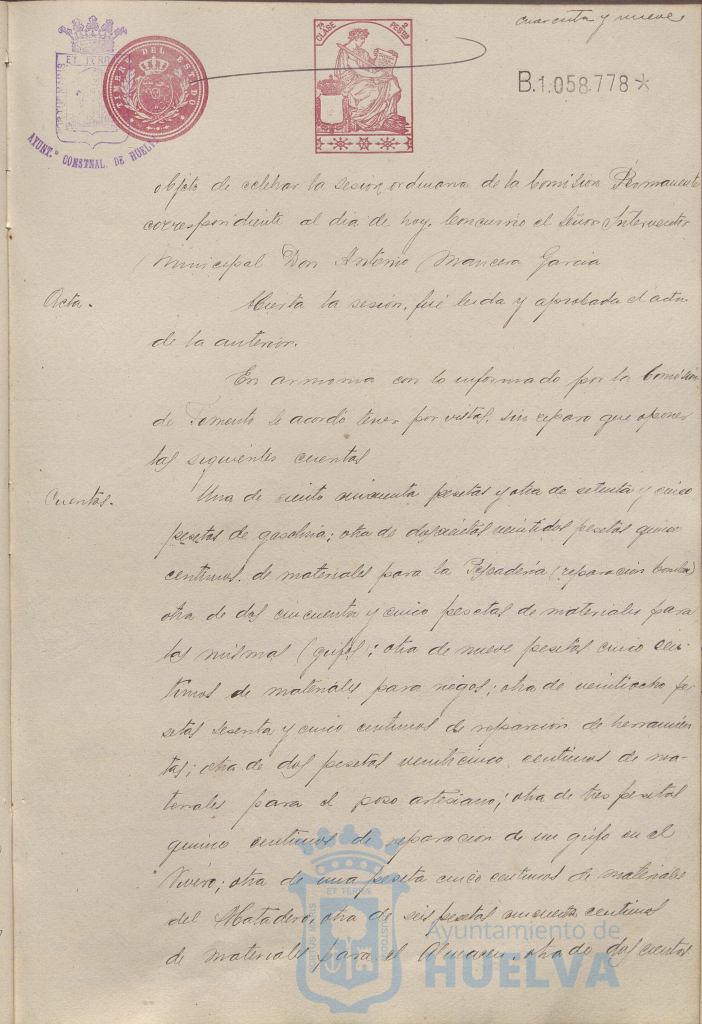 cuarenta y nueve
7ª CLASE 2 PESETAS
TIMBRE DEL ESTADO
AYUNT.º CONSTNAL. DE HUELVA
B.1.058.778 *
objeto de celebrar la sesion ordinaria de la Comision Permanente
correspondiente al dia de hoy. Concurrió el Señor Interventor
municipal Don Antonio Mancera Garcia
Acta.
Abierta la sesion, fué leida y aprobada el acta
de la anterior.
En armonia con lo informado por la Comision
de Fomento se acordó tener por vistas, sin reparo que oponer
las siguientes cuentas
Cuentas.
Una de ciento cincuenta pesetas y otra de setenta y cinco
pesetas de gasolina; otra de doscientas veintidos pesetas quince
centimos de materiales para la Pescadería (reparacion bomba)
otra de dos cincuenta y cinco pesetas de materiales para
las mismas (grifos); otra de nueve pesetas cinco cen-
timos de materiales para riegos; otra de veintiocho pe-
setas sesenta y cinco centimos de reparacion de herramien-
tas; otra de dos pesetas veinticinco centimos de ma-
teriales para el poso artesiano; otra de tres pesetas
quince centimos de reparacion de un grifo en el
Vivero; otra de una peseta cinco centimos de materiales
del Matadero, otra de seis pesetas cincuenta centimos
de materiales para el Almacen, otra de dos cientas
Ayuntamiento de
HUELVA